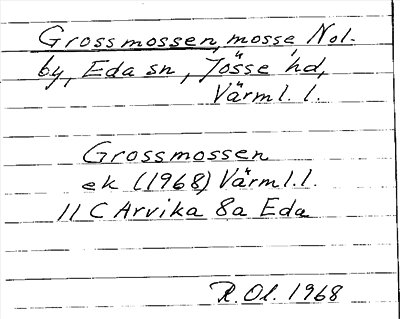 Grossmossen, mosse, Nol-
by, Eda sn, Jösse hd,
Värml. l.
Grossmossen
ek (1968) Värml.l.
11 C Arvika 8a Eda
R. Ol. 1968